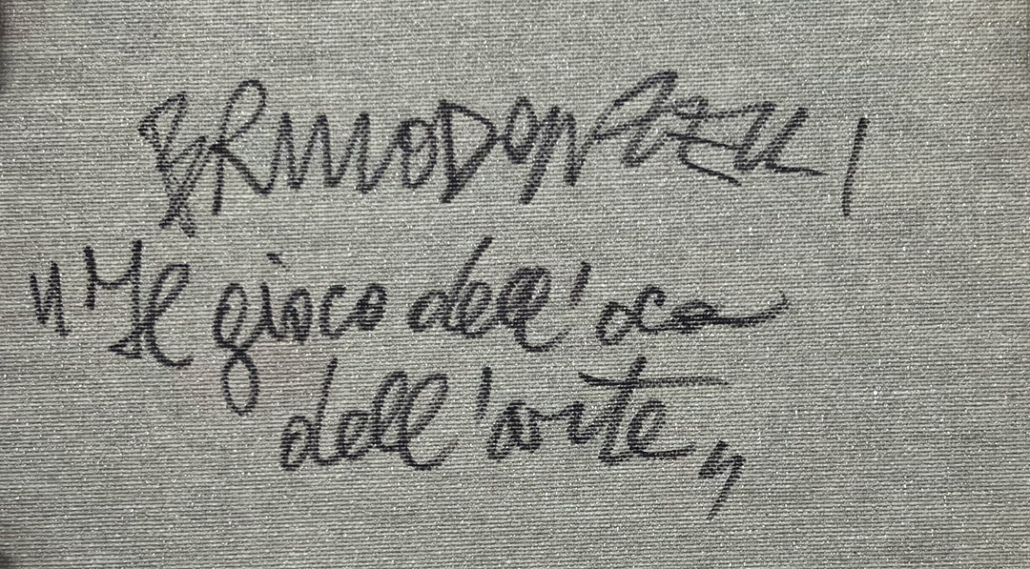 BRUNO DONZELLI
"Il gioco dell'oca
dell'arte"